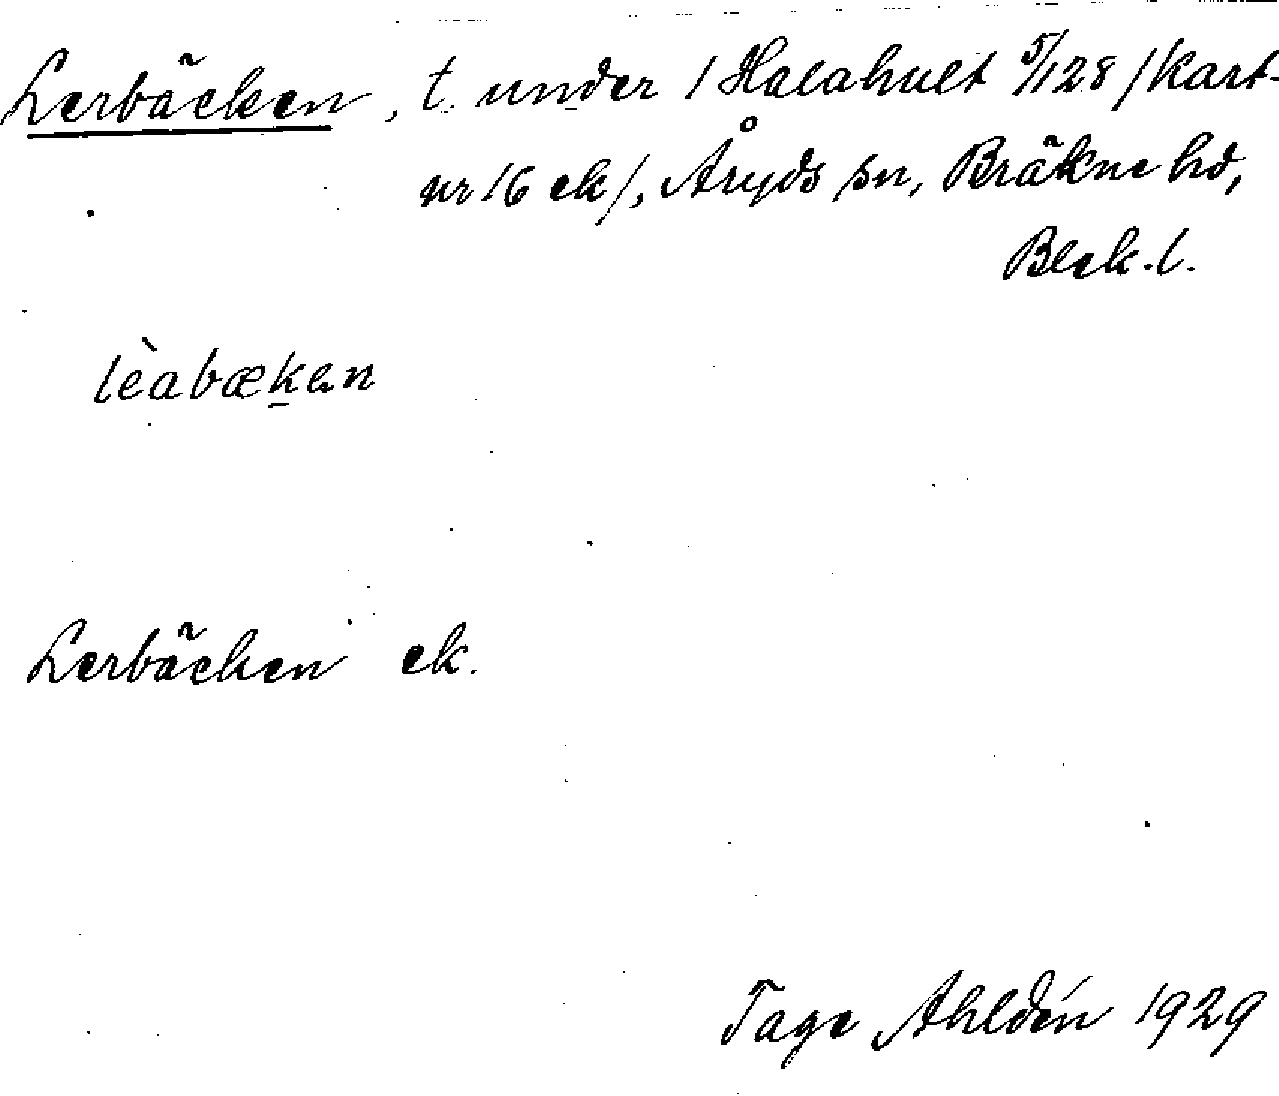 Lerbäcken, t. under 1 Halahult 5/128 /kart-
nr 16 ek/, Åryds sn, Bräkne hd,
Blek. l.
lèabækan
Lerbäcken ek.
Tage Ahldén 1929